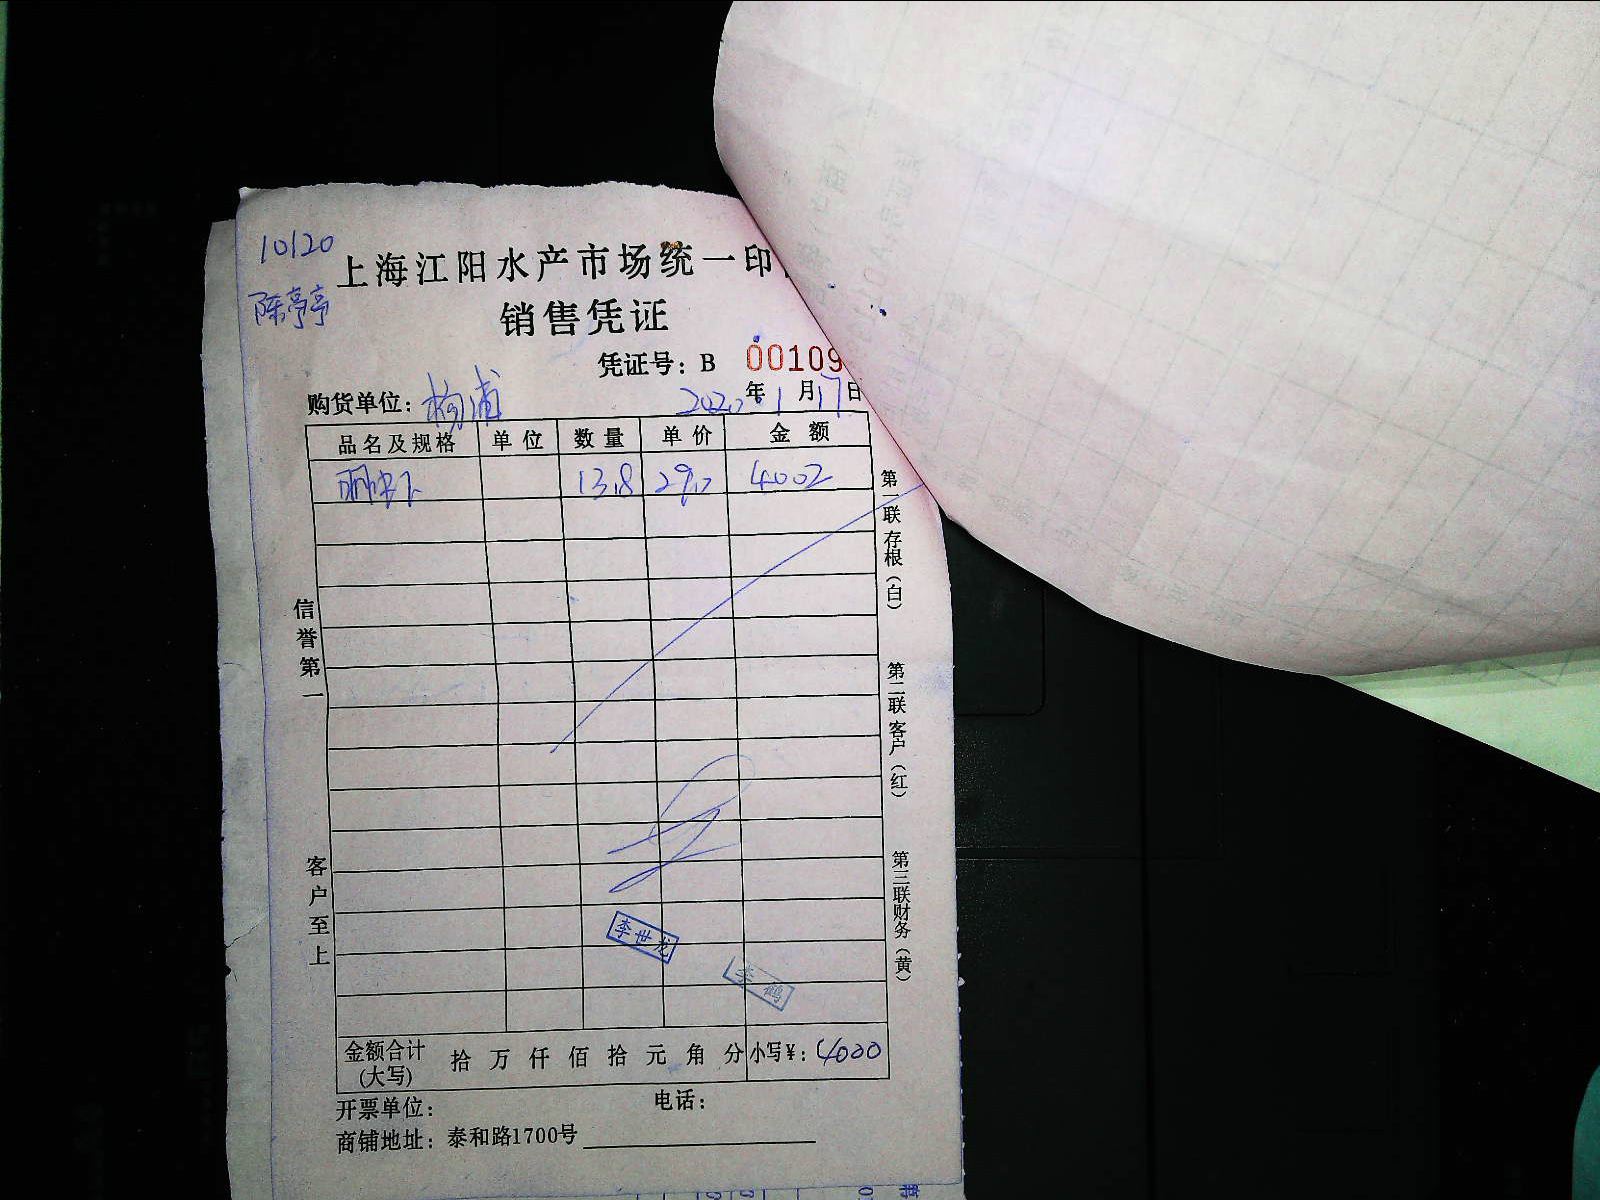 10120
陈亭亭
上海江阳水产市场统一印
销售凭证
凭证号：B 00109
购货单位：杨浦 2020年1月17日
品名及规格 单位 数量 单价 金额
13.8 29.0 4002
第一联存根（白）
第二联客户（红）
第三联财务（黄）
信誉第一
客户至上
李世龙
李鹤
金额合计(大写) 拾万仟佰拾元角分 小写¥：4000
开票单位： 电话：
商铺地址：泰和路1700号